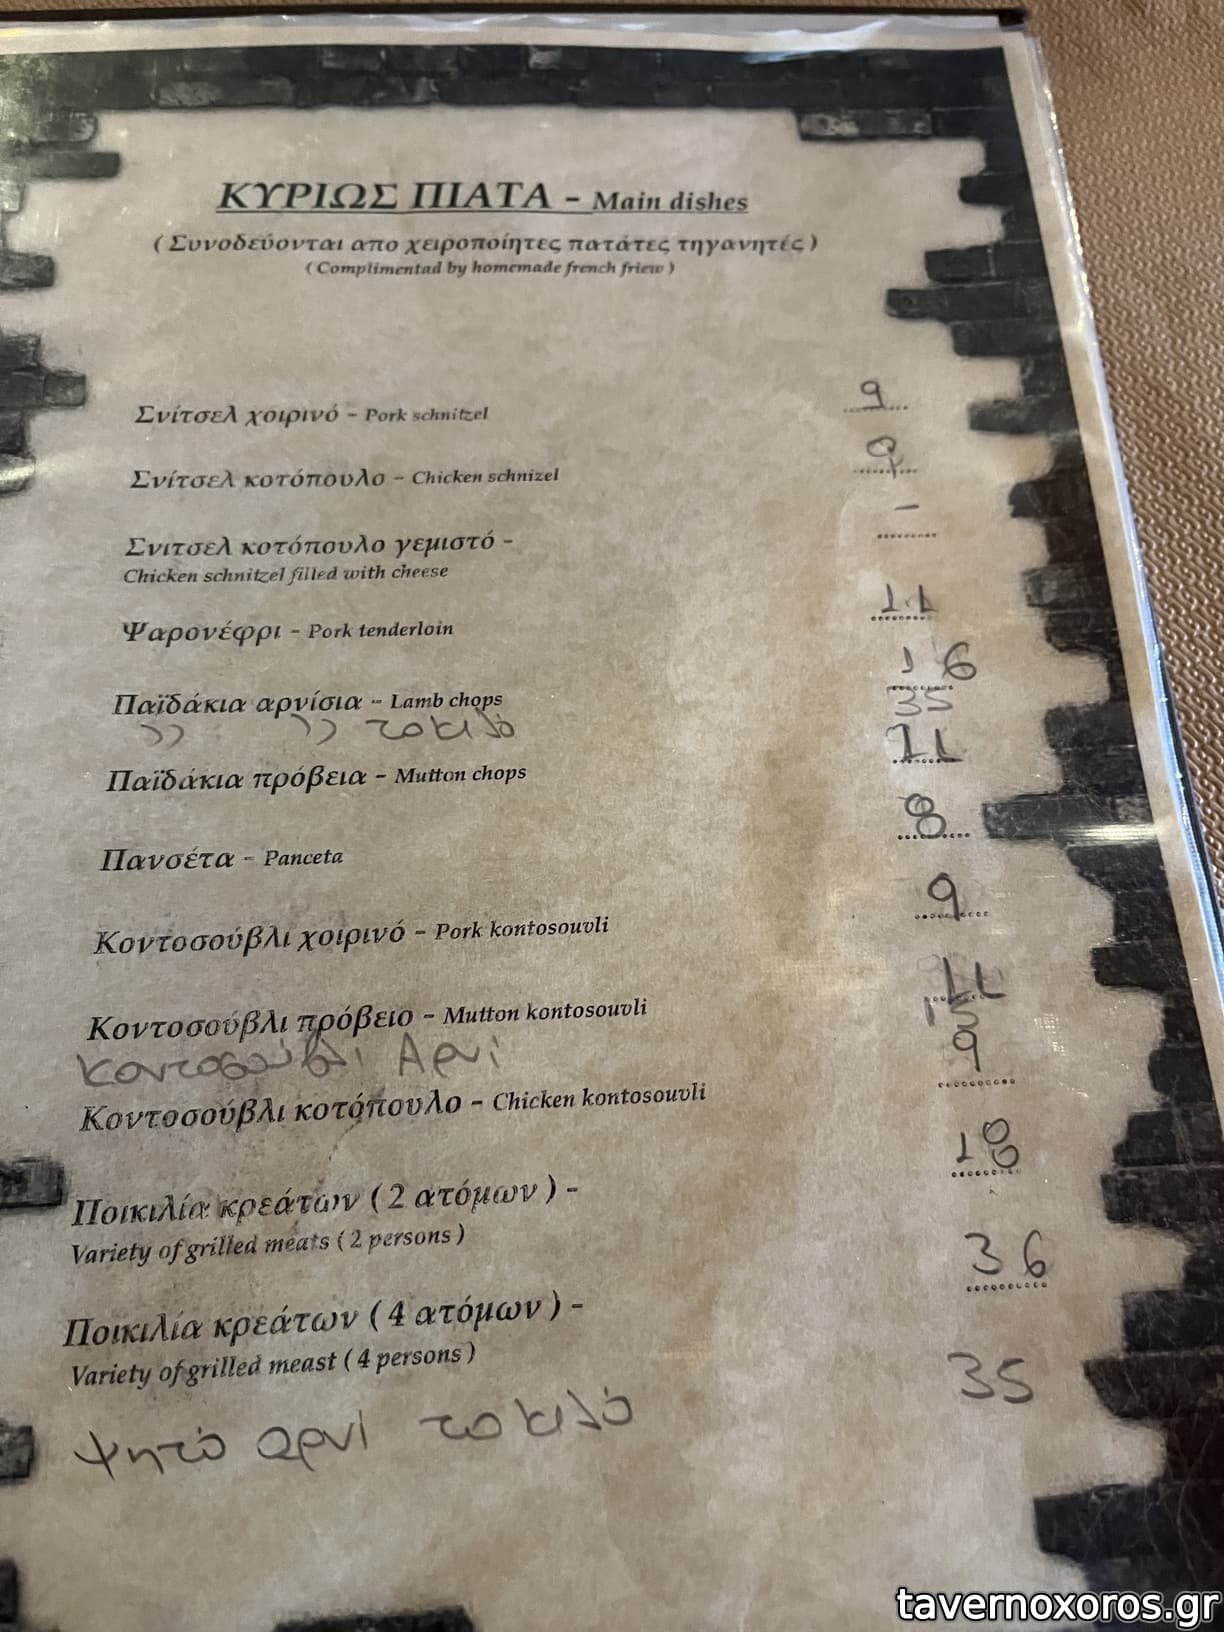 ΚΥΡΙΩΣ ΠΙΑΤΑ - Main dishes
( Συνοδεύονται απο χειροποίητες πατάτες τηγανητές )
( Complimentad by homemade french friew )
Σνίτσελ χοιρινό - Pork schnitzel 9
Σνίτσελ κοτόπουλο - Chicken schnizel 9
Σνιτσελ κοτόπουλο γεμιστό - –
Chicken schnitzel filled with cheese
Ψαρονέφρι - Pork tenderloin 11
Παϊδάκια αρνίσια - Lamb chops 16
〃 〃 το κιλό 35
Παϊδάκια πρόβεια - Mutton chops 11
Πανσέτα - Panceta 8
Κοντοσούβλι χοιρινό - Pork kontosouvli 9
Κοντοσούβλι πρόβειο - Mutton kontosouvli 11
Κοντοσούβλι Αρνί 15
Κοντοσούβλι κοτόπουλο - Chicken kontosouvli 9
Ποικιλία κρεάτων ( 2 ατόμων ) - 18
Variety of grilled meats ( 2 persons )
Ποικιλία κρεάτων ( 4 ατόμων ) - 36
Variety of grilled meast ( 4 persons )
Ψητό αρνί το κιλό 35
tavernoxoros.gr